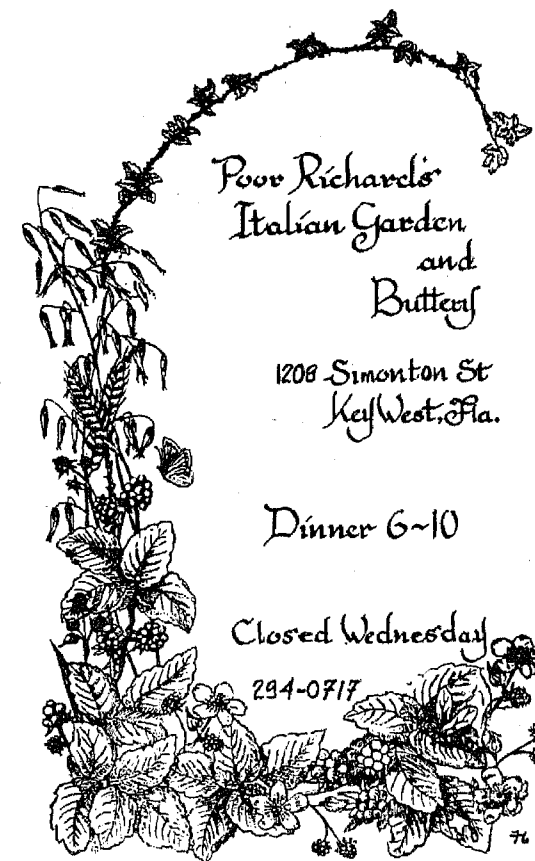 Poor Richard's
Italian Garden
and
Buttery
1208 Simonton St
Key West, Fla.
Dinner 6~10
Closed Wednesday
294-0717
76